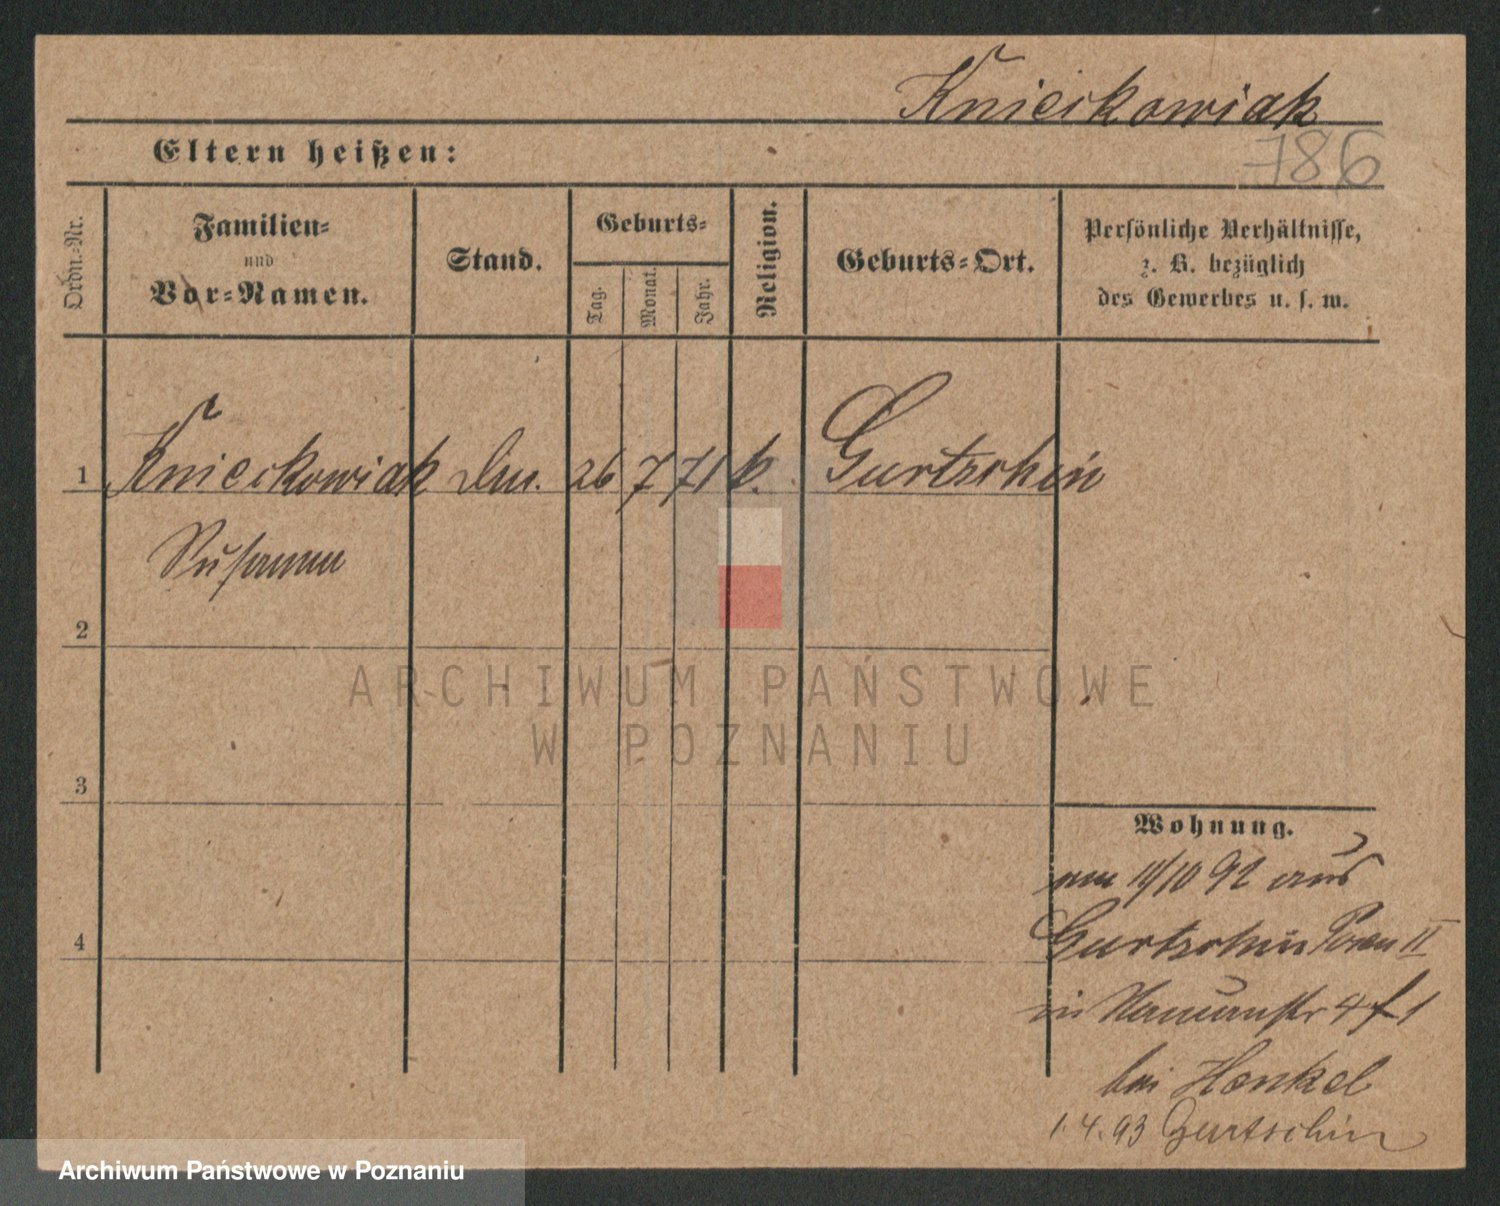 Knieckowiak
786
Eltern heißen:
Ordn.-Nr.
Familien-
und
Vor-Namen.
Stand.
Geburts-
Tag.
Monat.
Jahr.
Religion.
Geburts-Ort.
Persönliche Verhältnisse,
z. B. bezüglich
des Gewerbes u. s. w.
1 Knieckowiak 26 7 71 k. Gurtschin
Susanna
2
3
4
Wohnung.
am 11/10 92 aus
Gurtschin Posen II
in 4 f 1
bei Henkel
1.4.93 Gurtschin
ARCHIWUM PAŃSTWOWE
W POZNANIU
Archiwum Państwowe w Poznaniu